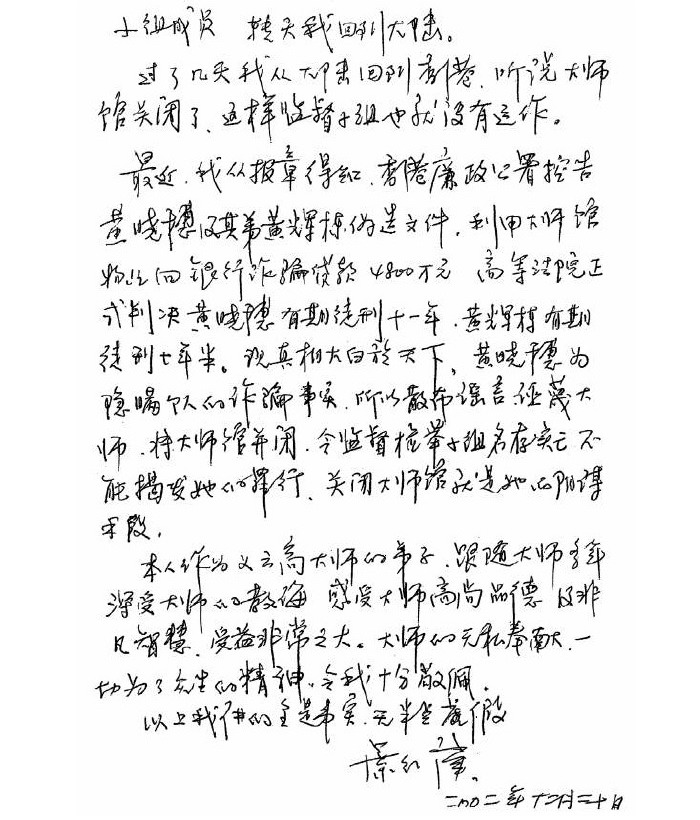 小组成员 转天我回到大陆。
过了几天我从大陆回到香港,听说大师
馆关闭了,这样监督小组也就没有运作。
最近,我从报章得知,香港廉政公署控告
黄晓穗及其弟黄辉栋伪造文件,利用大师馆
物业向银行诈骗贷款4800万元 高等法院正
式判决黄晓穗有期徒刑十一年,黄辉栋有期
徒刑七年半。现真相大白于天下,黄晓穗为
隐瞒个人的诈骗事实,所以散布谣言诬蔑大
师,将大师馆并闭,令监督检举小组名存实亡不
能揭发她的罪行、关闭大师馆就是她的阴谋
手段,
本人作为义云高大师的弟子,跟随大师多年
深受大师的教诲 感受大师高尚品德及非
凡智慧,受益非常之大。大师的无私奉献,一
切为了众生的精神,令我十分敬佩,
以上我讲的全是事实,无半点虚假
二〇〇二年十二月二十日